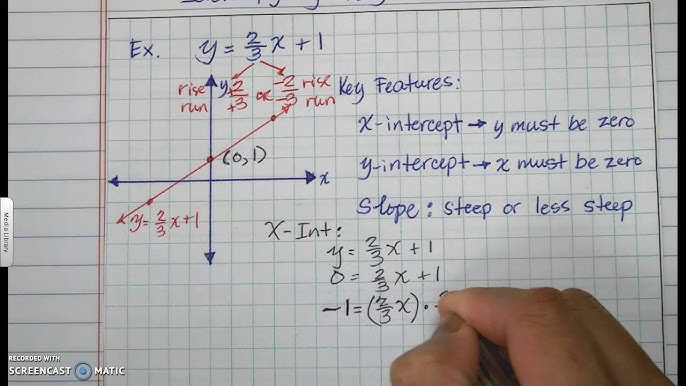 Ex. y = 2/3 x + 1
rise y +2 or -2 rise
run +3 -3 run
Key Features:
x-intercept → y must be zero
y-intercept → x must be zero
Slope: steep or less steep
(0,1)
x
y = 2/3 x + 1
X-Int:
y = 2/3 x + 1
0 = 2/3 x + 1
-1 = (2/3 x) ·
Media Library
RECORDED WITH
SCREENCAST MATIC